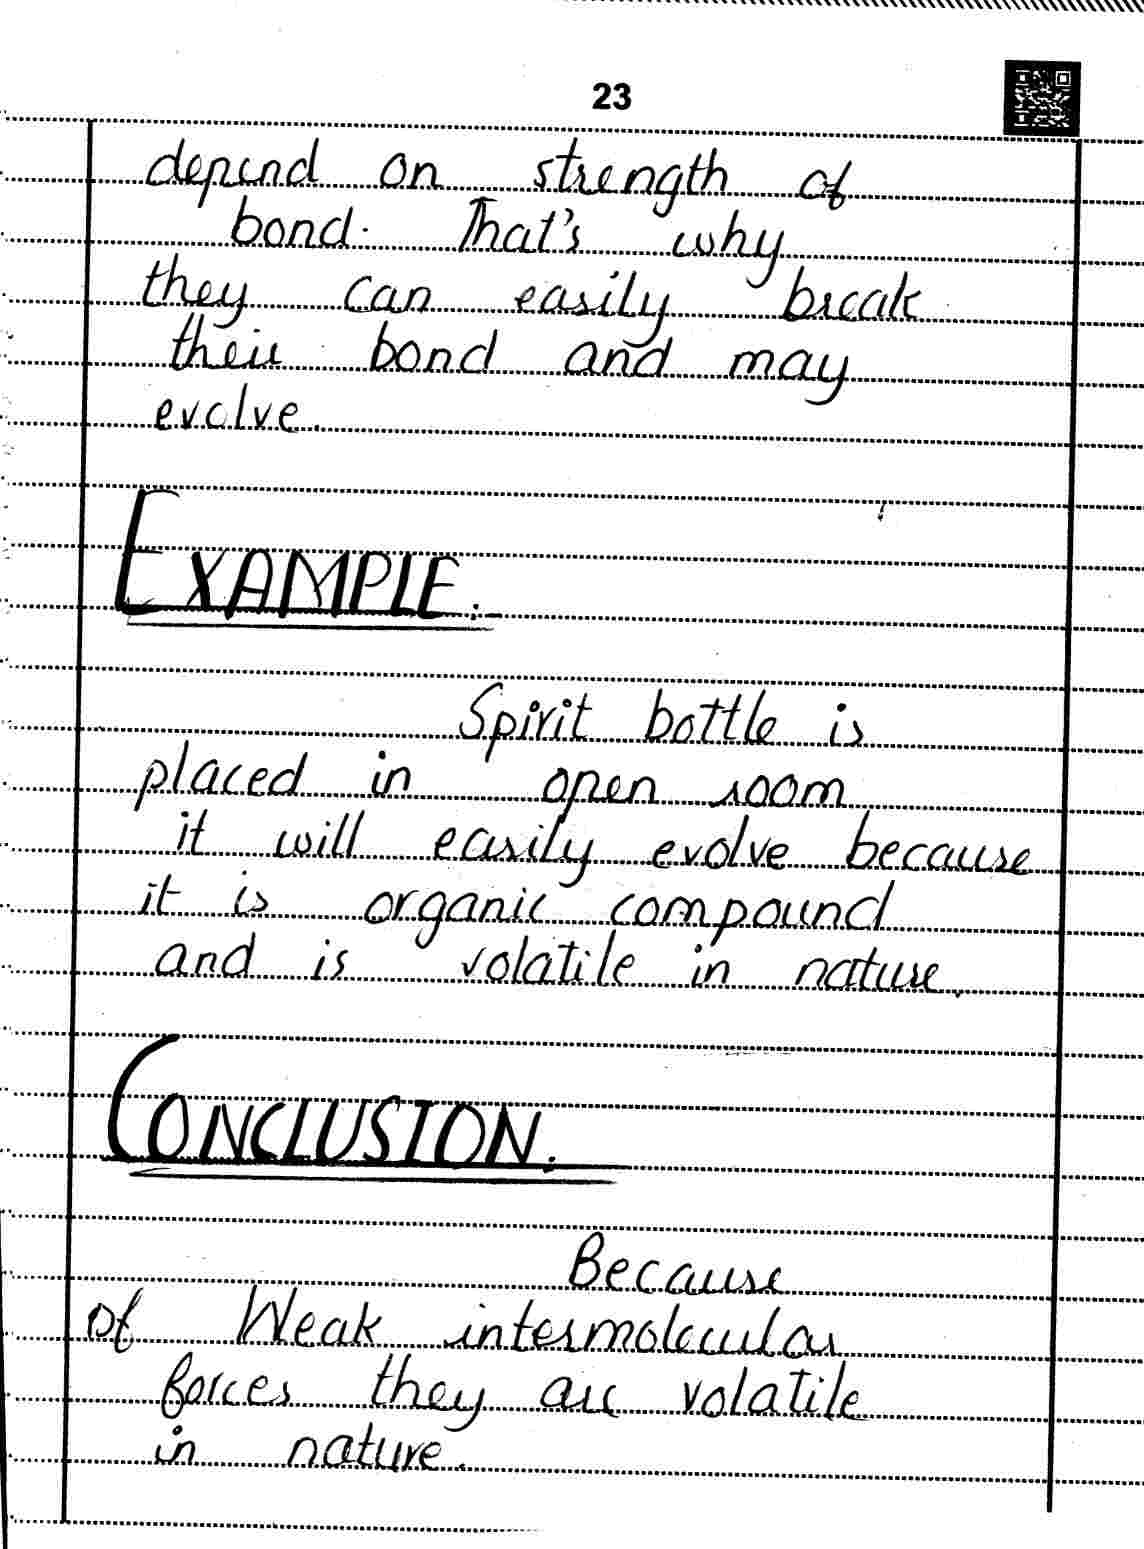 23
depend on strength of
bond. That's why
they can easily break
their bond and may
evolve.
EXAMPLE:
Spirit bottle is
placed in open room
it will easily evolve because
it is organic compound
and is volatile in nature.
CONCLUSION:
Because
of Weak intermolecular
forces they are volatile
in nature.